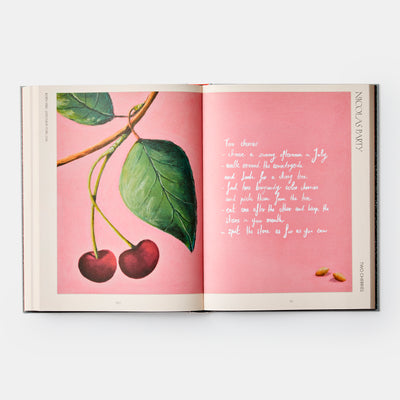 NICOLAS PARTY
Two cherries
- choose a sunny afternoon in July
- walk around the countryside
and look for a cherry tree
find two burgundy color cherries
and pick them from the tree
eat one after the other and keep the
stones in your mouth
- spit the stones as far as you can
TWO CHERRIES